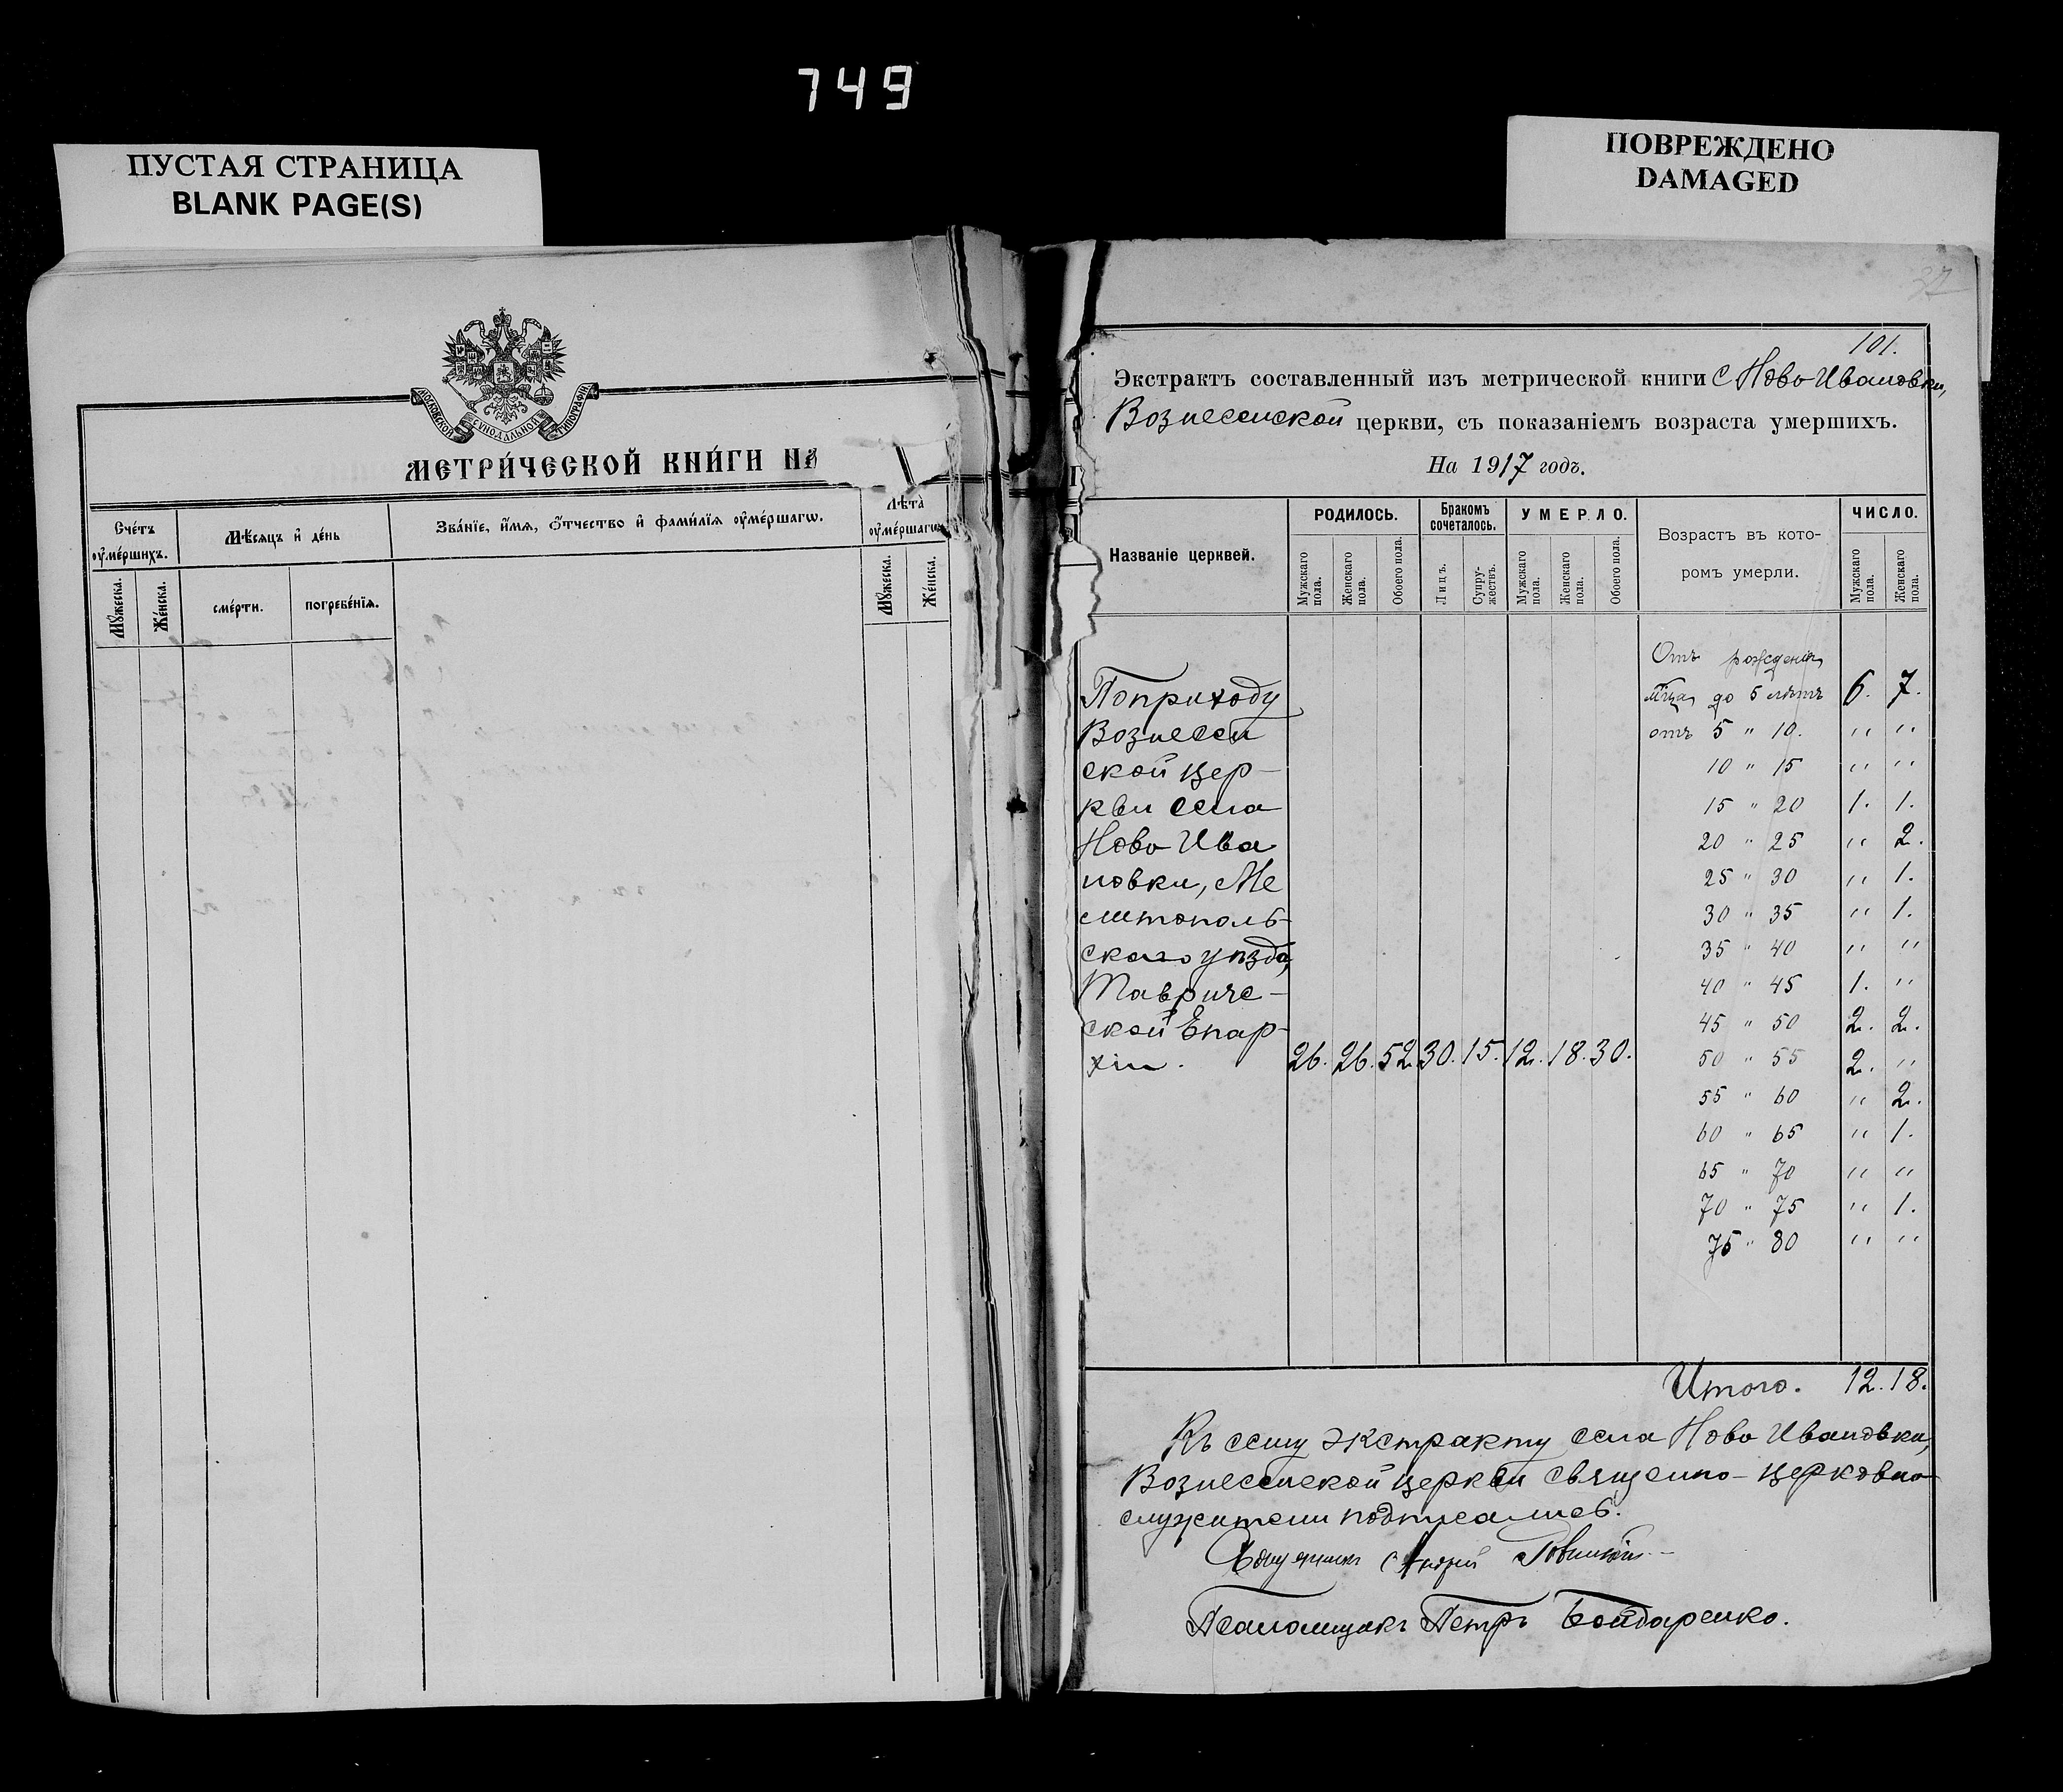 749
ПУСТАЯ СТРАНИЦА
BLANK PAGE(S)
ПОВРЕЖДЕНО
DAMAGED
МОСКОВСКОЙ СѴНОДАЛЬНОЙ ТИПОГРАФІИ
МЕТРИ́ЧЕСКОЙ КНИ́ГИ НА
Сче́тъ ᲂу҆ме́ршихъ.
Мѣ́сяцъ и҆ де́нь
Зва́нїе, и҆́мѧ, ѻ҆́тчество и҆ фами́лїѧ ᲂу҆ме́ршагѡ.
Лѣ́та ᲂу҆ме́ршагѡ
Мꙋ́жеска.
Же́нска.
сме́рти.
погребе́нїѧ.
Мꙋ́жеска.
Же́нска.
37
101.
Экстрактъ составленный изъ метрической книги С Ново Ивановки,
Вознесенской церкви, съ показаніемъ возраста умершихъ.
На 1917 годъ.
Названіе церквей.
РОДИЛОСЬ.
Бракомъ сочеталось.
УМЕРЛО.
Возрастъ въ кото-
ромъ умерли.
ЧИСЛО.
Мужскаго пола.
Женскаго пола.
Обоего пола.
Лицъ.
Супру-жествъ.
Мужскаго пола.
Женскаго пола.
Обоего пола.
Мужскаго пола.
Женскаго пола.
По приходу
Вознесен
ской цер-
кви села
Ново Ива
новки, Ме
литополь-
скаго уѣзда,
Тавриче-
ской Епар-
хіи. 26. 26. 52. 30. 15. 12. 18. 30.
Отъ рожденія
до 5 лѣтъ 6. 7.
отъ 5 " 10. " "
10 " 15 " "
15 " 20 1. 1.
20 " 25 " 2.
25 " 30 " 1.
30 " 35 " 1.
35 " 40 " "
40 " 45 1. "
45 " 50 2. 2.
50 " 55 2. "
55 " 60 " 2.
60 " 65 " 1.
65 " 70 " "
70 " 75 " 1.
75 " 80 " "
Итого. 12. 18.
Къ сему экстракту села Ново Ивановки,
Вознесенской церкви священно-церковно
служители подписались.
Андрей
Псаломщикъ Петръ Бондаренко.